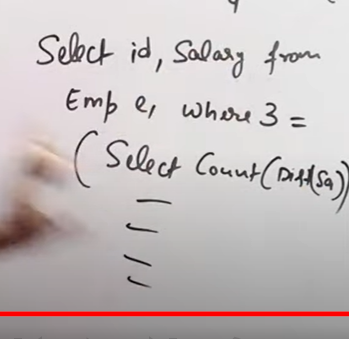 Select id, Salary from
Emp e, where 3 =
( Select Count(Dist(Sa))